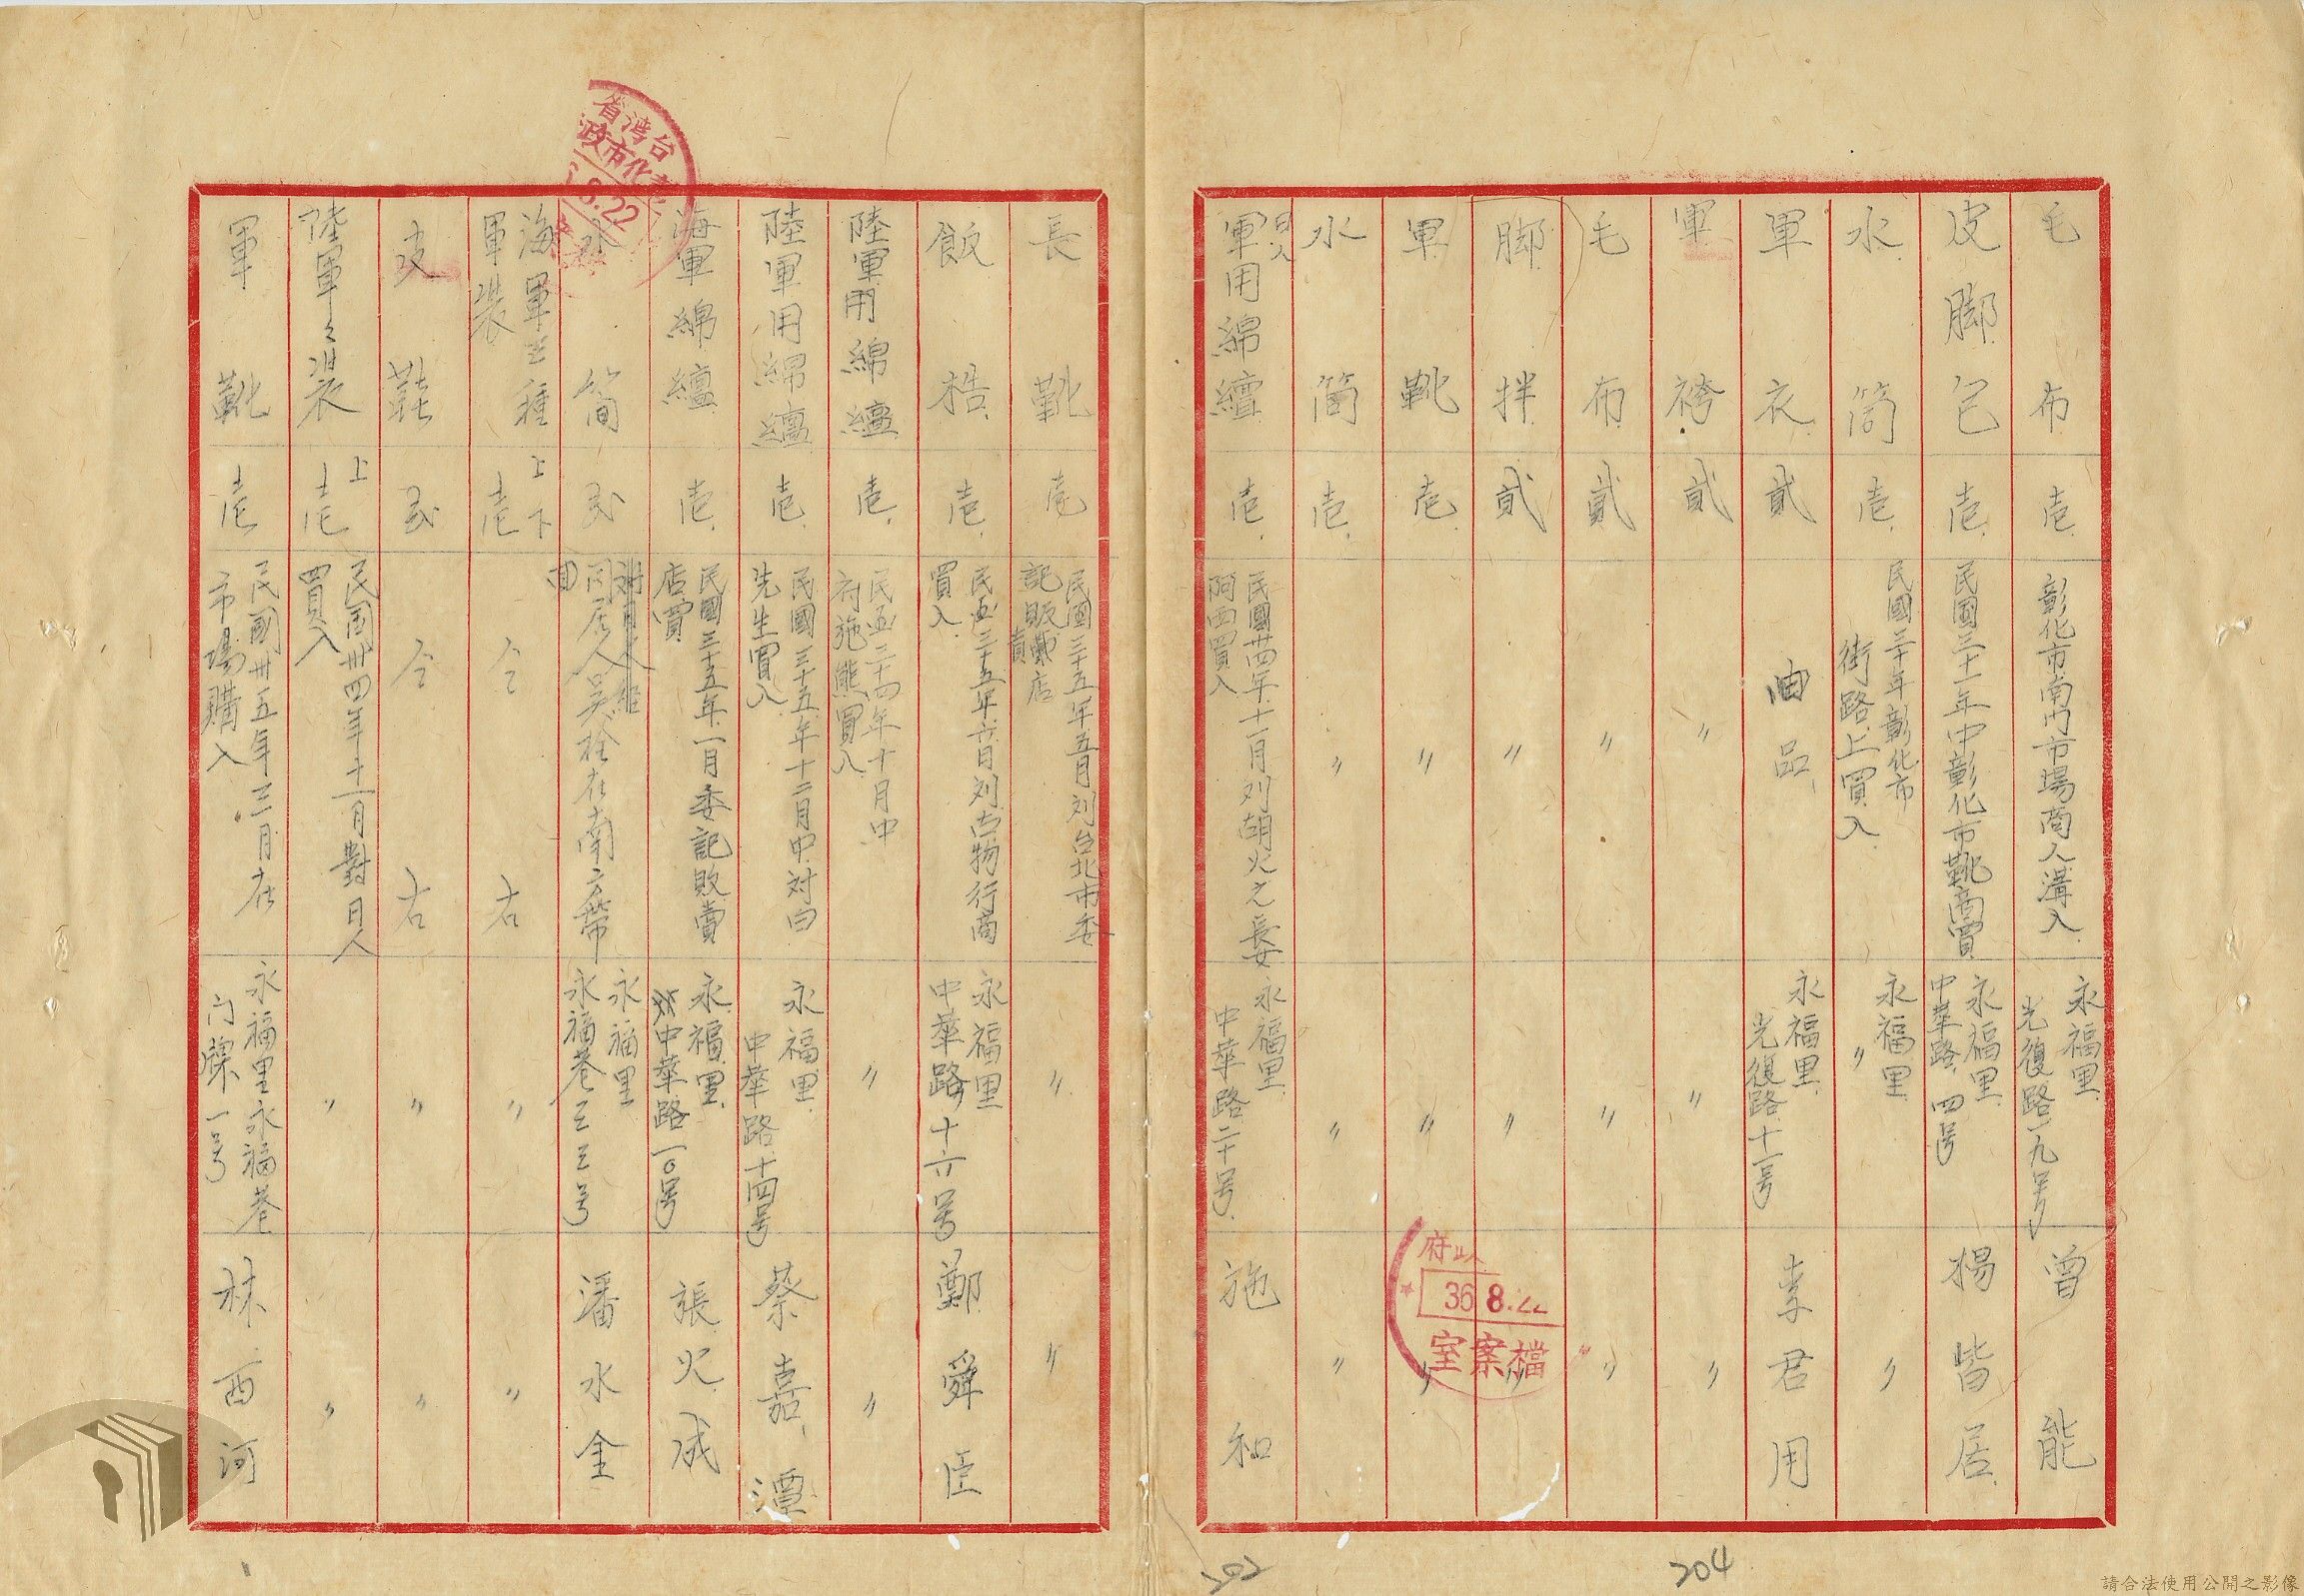 毛布 壱 彰化市南門市場商人溝入. 永福里 光復路一九号 曾能
皮脚包 壱. 民国三十一年中彰化市靴商買 永福里 中華路,四号 楊皆居.
水筒 壱. 民國三十年彰化市 街路上買入 永福里 〃 〃
軍衣 貳 由品、 永福里 光復路十一号 李君用
軍袴 貳 〃 〃 〃
毛布 貳 〃 〃 〃
脚拌 貳 〃 〃 〃
軍靴 壱. 〃 〃 〃
水筒 壱. 〃 〃 〃
日人軍用綿繵 壱. 民國卅四年十一月刘胡火之長女 阿西買入 永福里 中華路二十号. 施和
長靴 壱 民國三十五年五月刘台北市委 記販賣店 〃 〃
飯梏. 壱. 民国三十五年六月刘古物行商 買入. 永福里 中華路十六号 鄭舜臣
陸軍用綿繵. 壱. 民国三十四年十月中 府施熊買入 〃 〃
陸軍用綿繵 壱. 民國三十五年十二月中対白 先生買入 永福里. 中華路十四号 蔡嘉潭
海軍綿繵 壱. 民國三十五年一月委記敗賣 店買 永福里. 中華路一〇号 張火成
水筒 弍 同居人吳栓在南方帶 回 永福里 永福巷三三号 潘水金
海軍三種軍装 上下壱 仝右 〃 〃
皮鞋 弍 仝右 〃 〃
陸軍々装 上壱 民国卅四年十一月對日人 買入 〃 〃
軍靴 壱 民國卅五年三月在 市場購入 永福里永福巷 门牌一号 林西河
台湾省
彰化市政
8.22
府
36 8.22
檔案室
202
204
請合法使用公開之影像